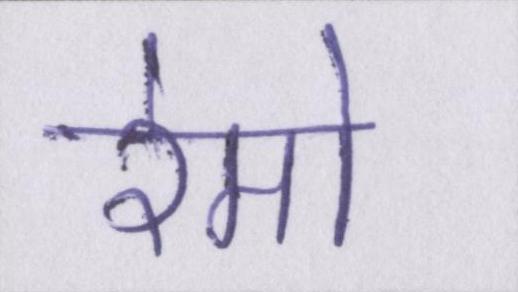 रेमो